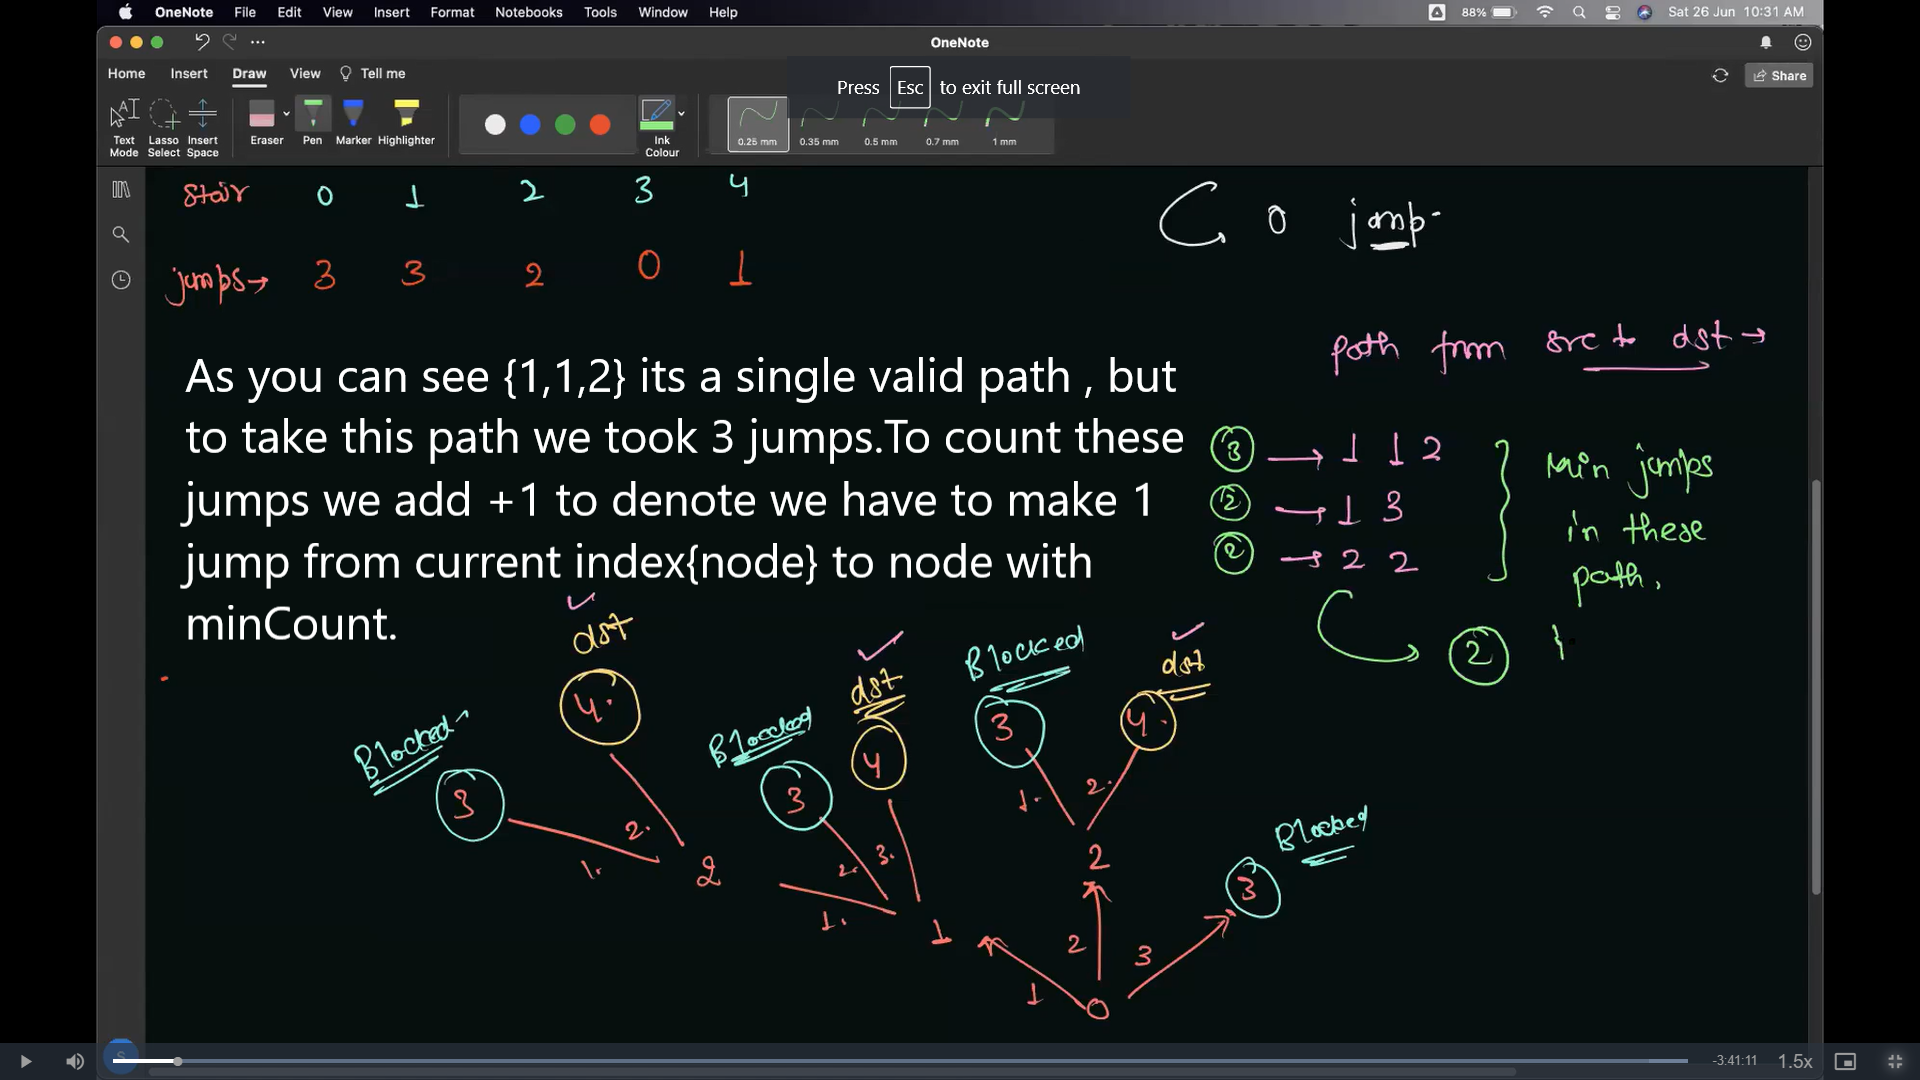 OneNote File Edit View Insert Format Notebooks Tools Window Help 88% Sat 26 Jun 10:31 AM
OneNote
Home Insert Draw View Tell me Share
Press Esc to exit full screen
Text Mode Lasso Select Insert Space Eraser Pen Marker Highlighter Ink Colour 0.25 mm 0.35 mm 0.5 mm 0.7 mm 1 mm
stair 0 1 2 3 4
0 jump.
jumps→ 3 3 2 0 1
path from src to dst →
As you can see {1,1,2} its a single valid path , but
to take this path we took 3 jumps.To count these
jumps we add +1 to denote we have to make 1
jump from current index{node} to node with
minCount.
3 → 1 1 2
2 → 1 3
2 → 2 2
Min jumps
in these
path.
2
dst
4.
Blocked
3
2.
1.
2
Blocked
3
dst
4
2.
3.
1.
1
Blocked
3
dst
4.
1.
2.
2
Blocked
3
1
2
3
0
-3:41:11 1.5x